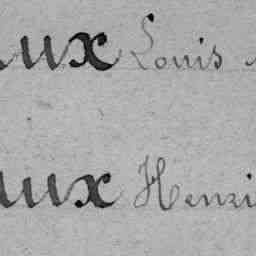 aux Louis
aux Henri